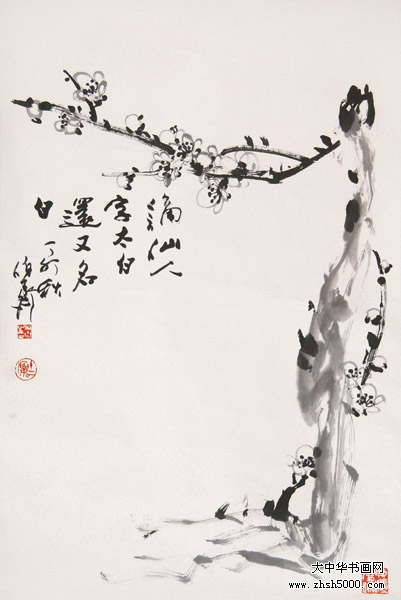 仙人
字太白
還又名
白
丁卯秋
大中华书画网
www.zhsh5000.com